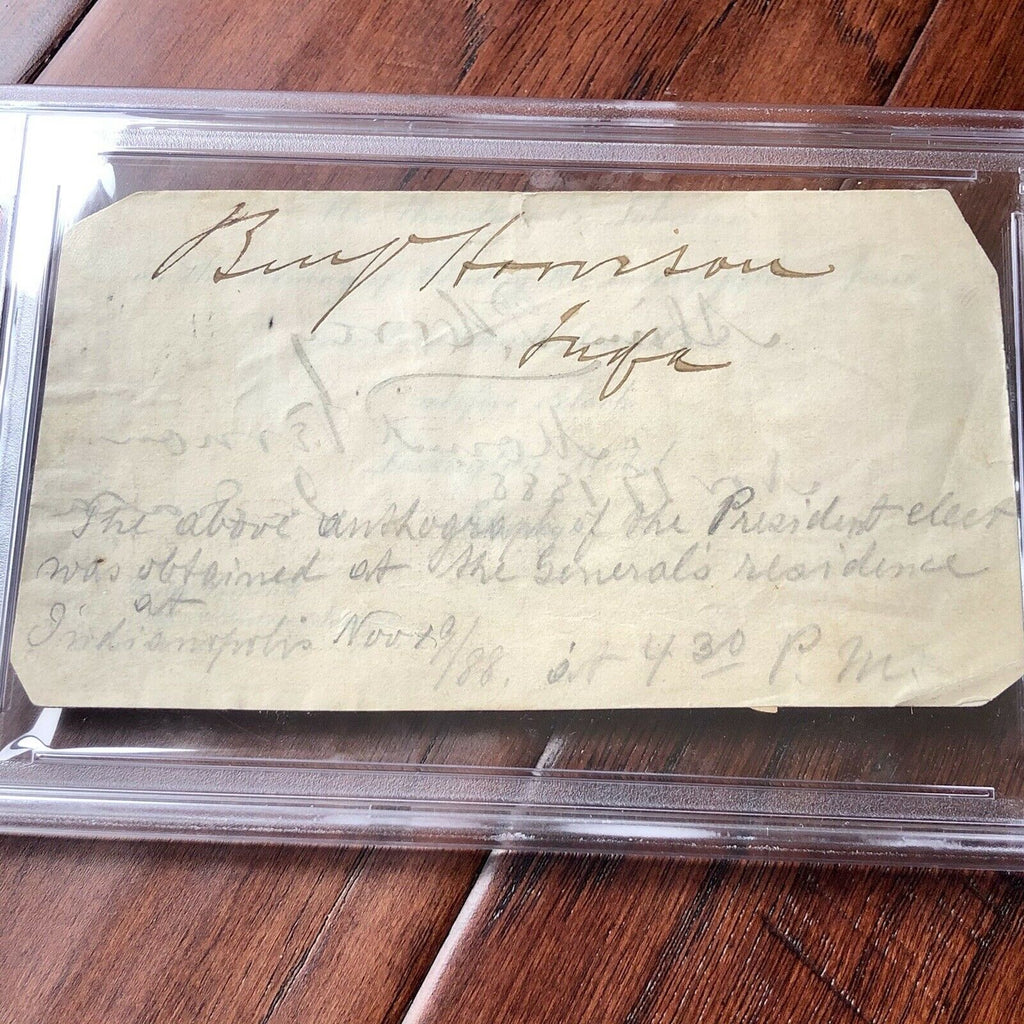 Benj Harrison
Inda
The above authograph of the President elect
was obtained at the General's residence
at
Indianopolis Nov 19/88. at 4 30 P. M.